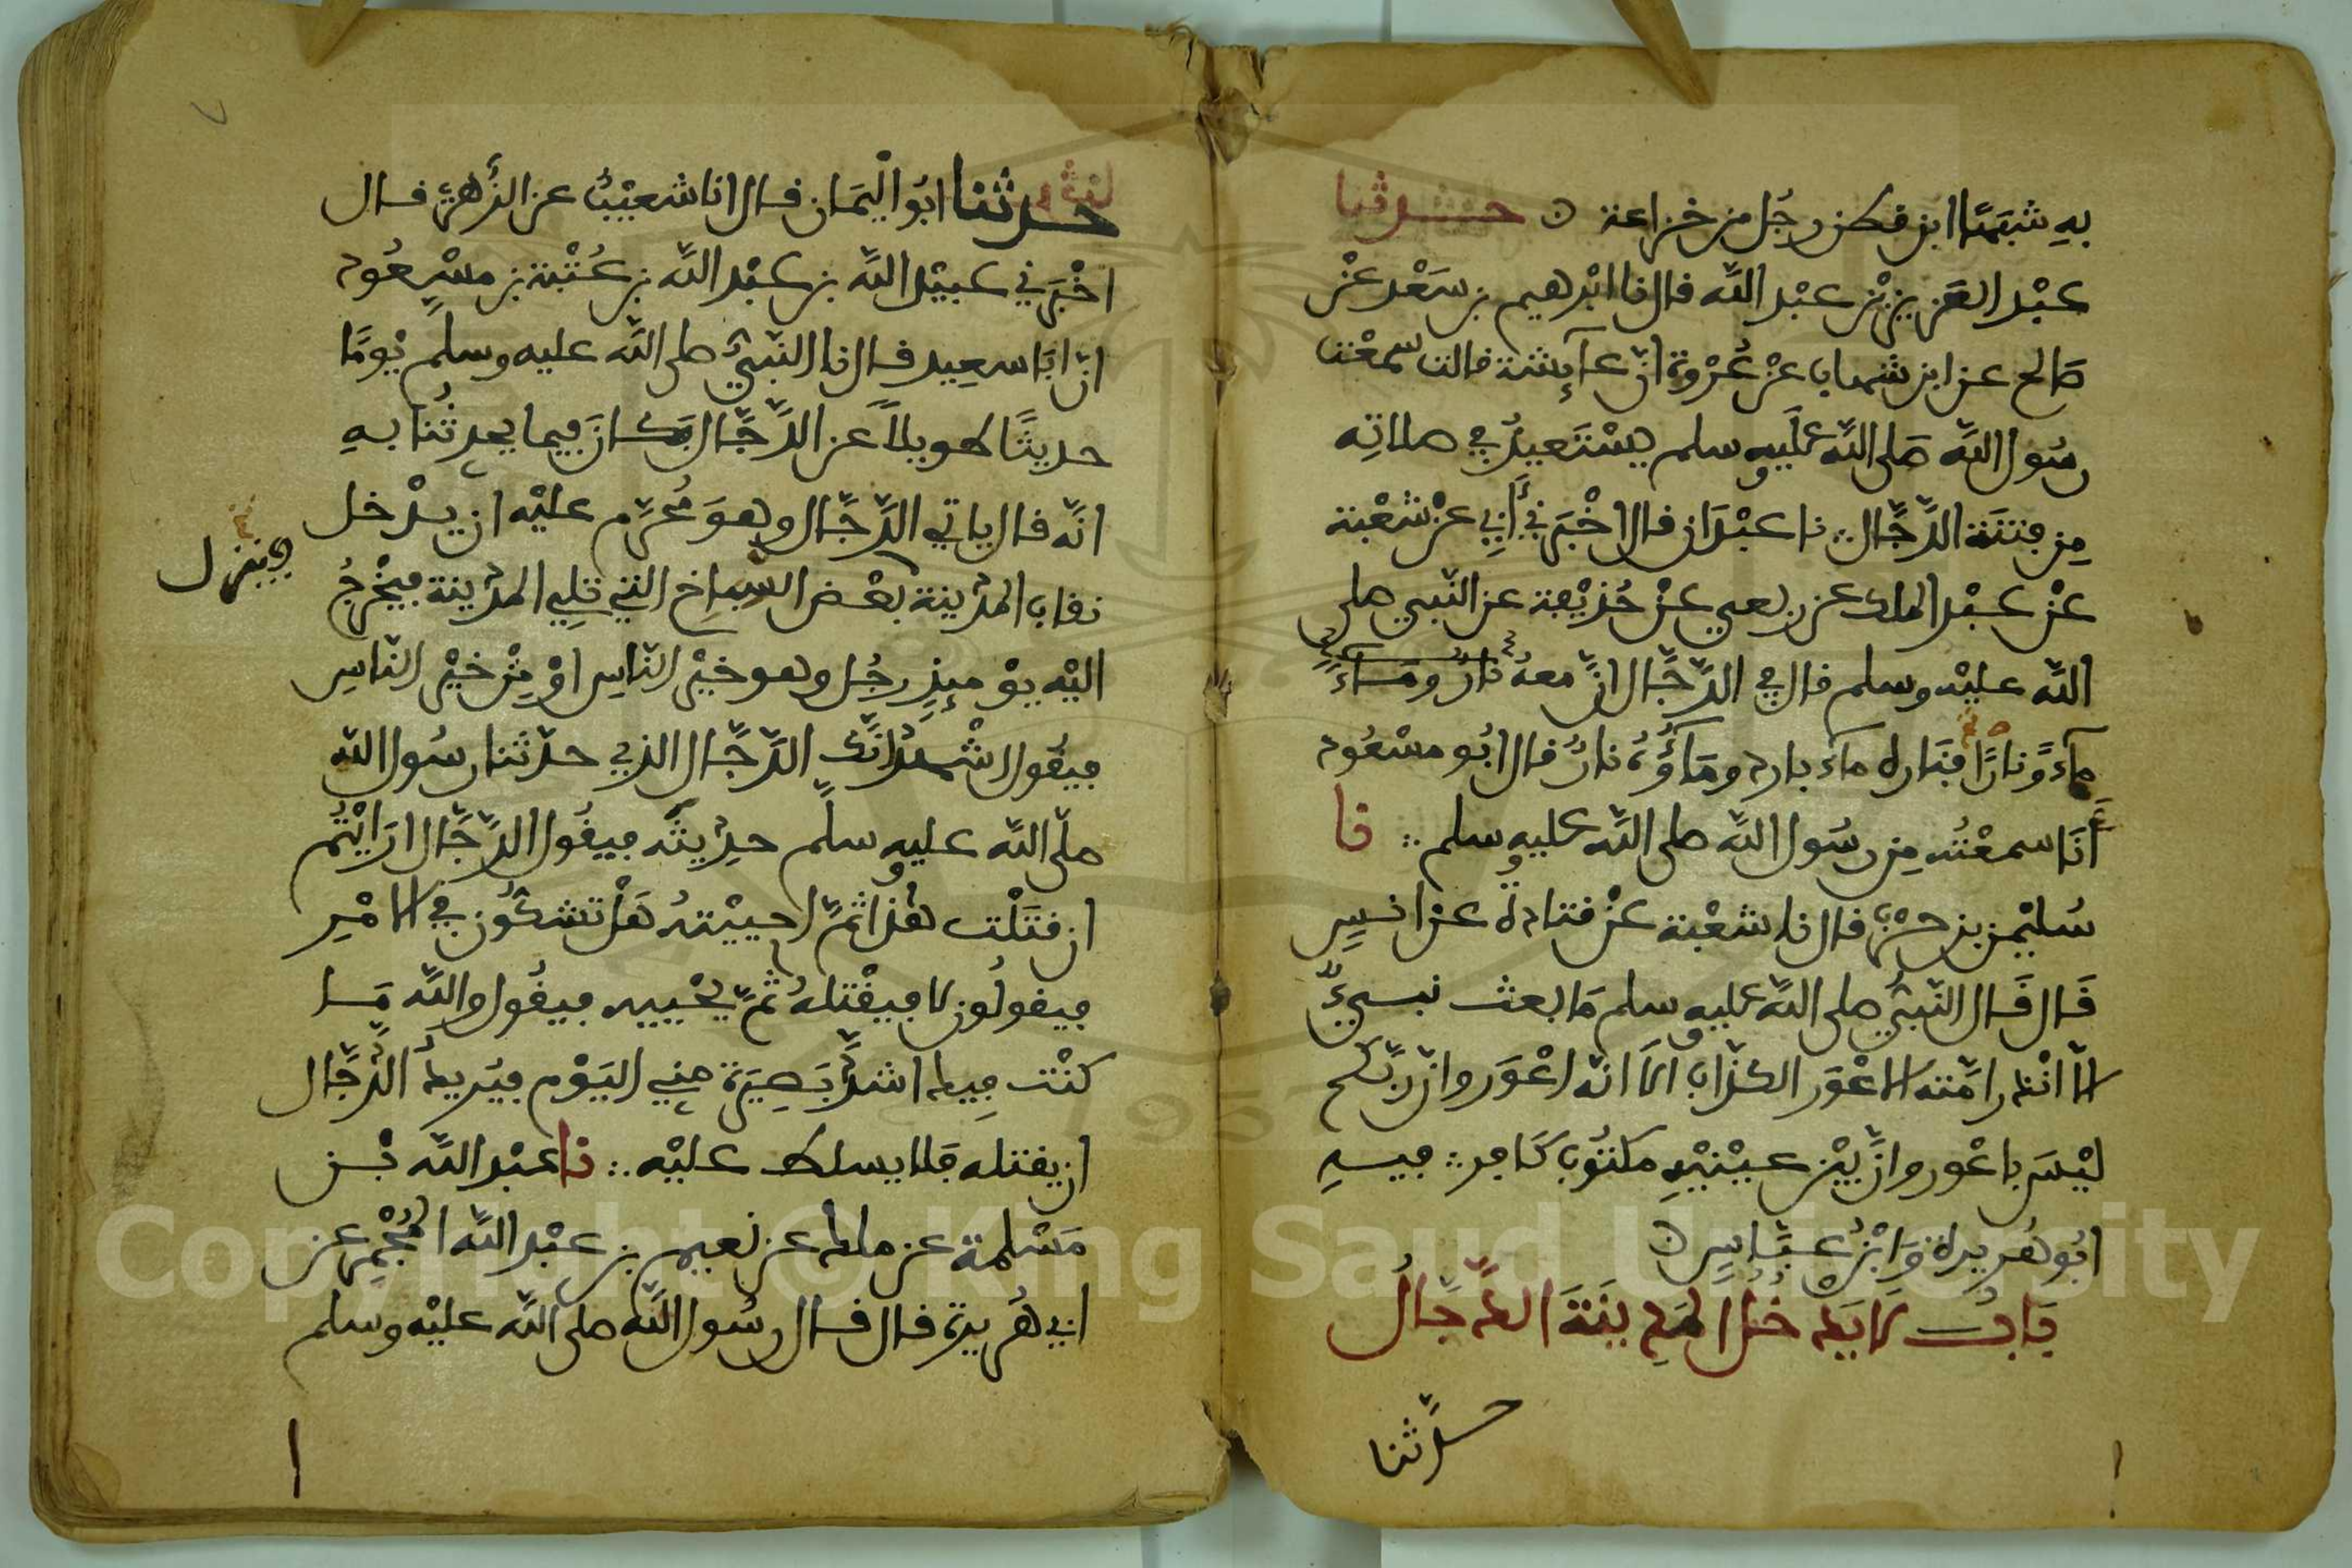 به شبها ابن قطن رجل من خزاعة ۞ حدثنا
عبد العزيز بن عبد الله قال نا ابرهيم بن سعد عن
صالح عن ابن شهاب عن عروة ان عآئشة قالت سمعت
رسول الله صلى الله عليه وسلم يستعيذ في صلاته
من فتنة الدجال ∴ نا عبدان قال اخبرني أبي عن شعبة
عن عبد الملك عن ربعي عن حذيفة عن النبي صلى
الله عليه وسلم قال في الدجال ان معه نار وماء
مآء ونارا فناره مآء بارد ومآؤه نار قال ابو مسعود
أنا سمعته من رسول الله صلى الله عليه وسلم ∴ نا
سليمن بن حرب قال نا شعبة عن قتادة عن انس
قال قال النبي صلى الله عليه وسلم ما بعث نبيء
الا انذر امته الاعور الكذاب الا انه اعور وان ربكم
ليس باعور وان بين عينيه مكتوب كافر ∴ فيه
ابو هريرة وابن عباس ۞
باب لا يدخل المدينة الدجال
حدثنا
حدثنا ابو اليمان قال انا شعيب عن الزهري قال
اخبرني عبيد الله بن عبد الله بن عتبة بن مسعود
ان ابا سعيد قال نا النبي صلى الله عليه وسلم يوما
حديثا طويلا عن الدجال فكان فيما يحدثنا به
انه قال ياتي الدجال وهو محرم عليه ان يدخل
فينزل
نقاب المدينة بعض السباخ التي تلي المدينة فيخرج
اليه يومئذ رجل وهو خير الناس او من خير الناس
فيقول اشهد انك الدجال الذي حدثنا رسول الله
صلى الله عليه وسلم حديثه فيقول الدجال ارايتم
ان قتلت هذا ثم احييته هل تشكون في الامر
فيقولون لا فيقتله ثم يحييه فيقول والله مـا
كنت فيك اشد بصيرة مني اليوم فيريد الدجال
ان يقتله فلا يسلط عليه ∴ نا عبد الله بن
مسلمة عن ملك عن نعيم بن عبد الله المجمر عن
ابي هريرة قال قال رسول الله صلى الله عليه وسلم
Copyright © King Saud University
1957